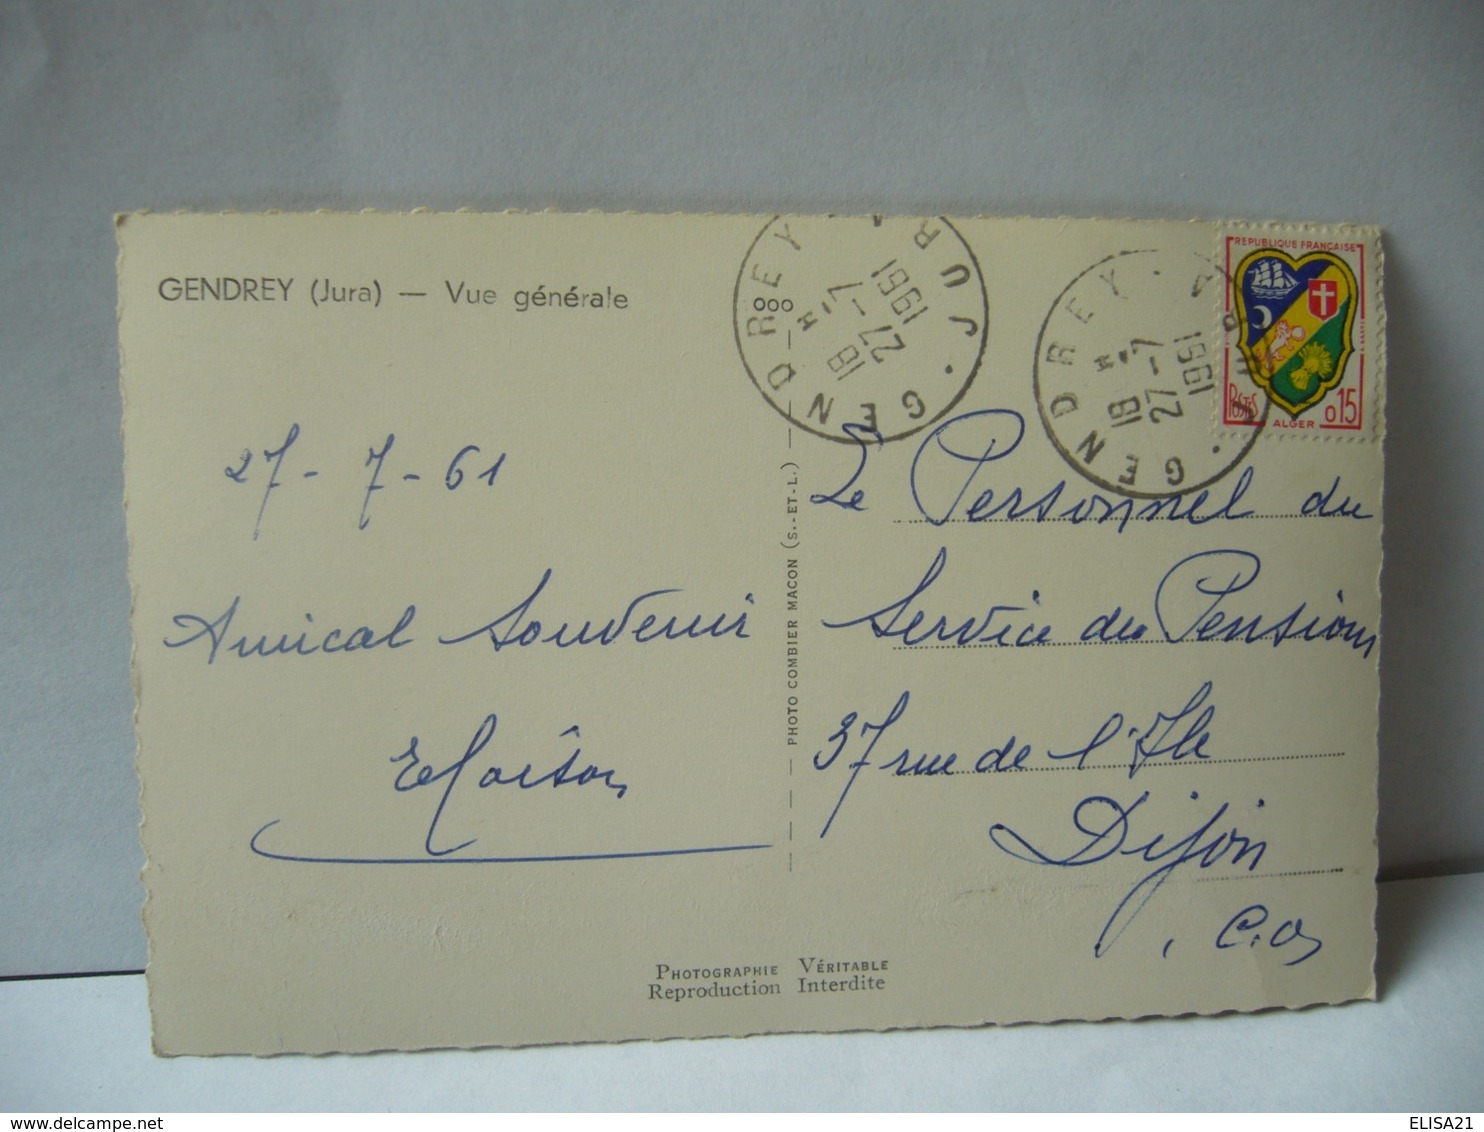 GENDREY (Jura) — Vue générale
27-7-61
Amical Souvenir
PHOTO COMBIER MACON (S.-ET-L.)
GENDREY · JURA ·
18 H
27-7
1961
GENDREY · JURA ·
18 H
27-7
1961
REPUBLIQUE FRANÇAISE
POSTES
ALGER
0 15
Le Personnel du
Service des Pensions
37 rue de l'Ile
Dijon
C. Or
PHOTOGRAPHIE VÉRITABLE
Reproduction Interdite
ELISA21